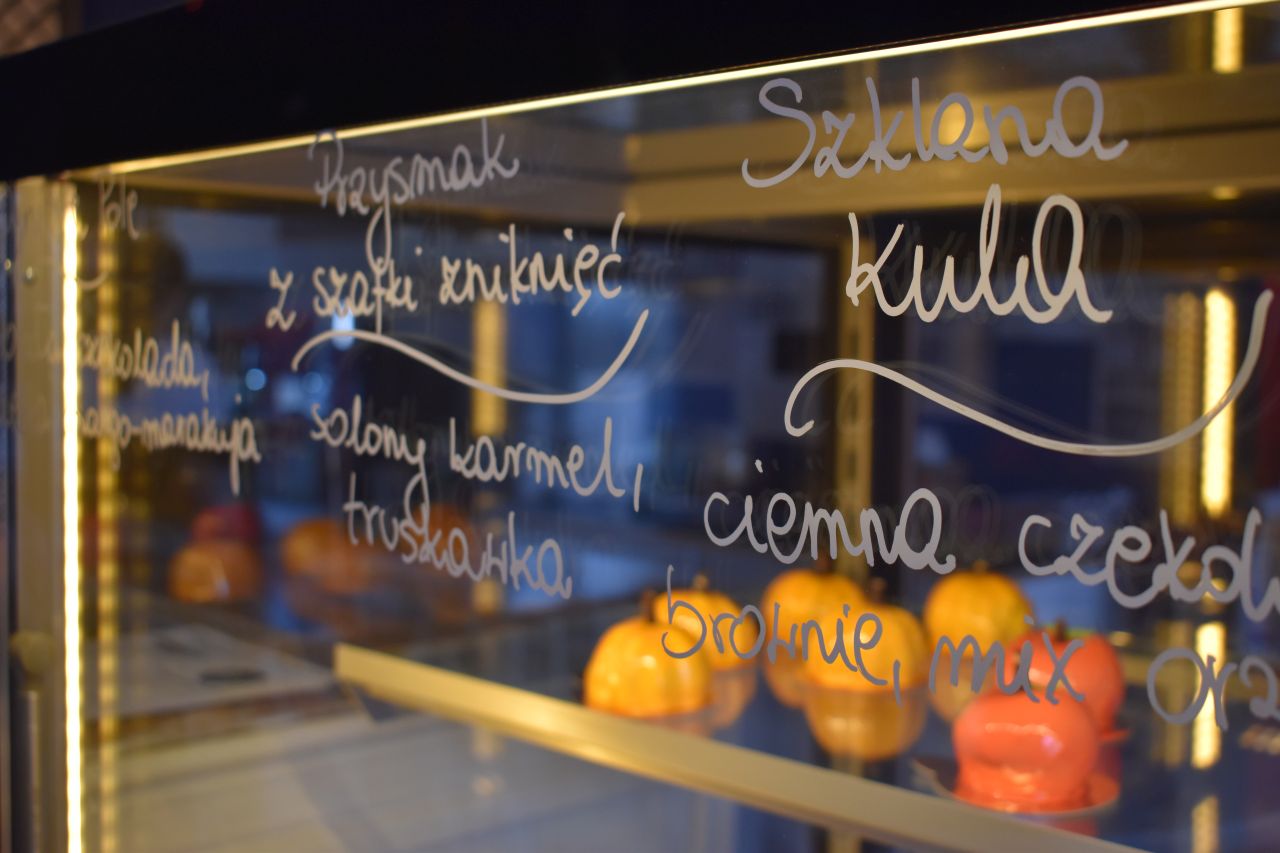 Pole
czekolada,
mango-marakuja
Przysmak
z szafki zniknięć
solony karmel,
truskawka
Szklana
kula
ciemna czekol
brownie, mix orz